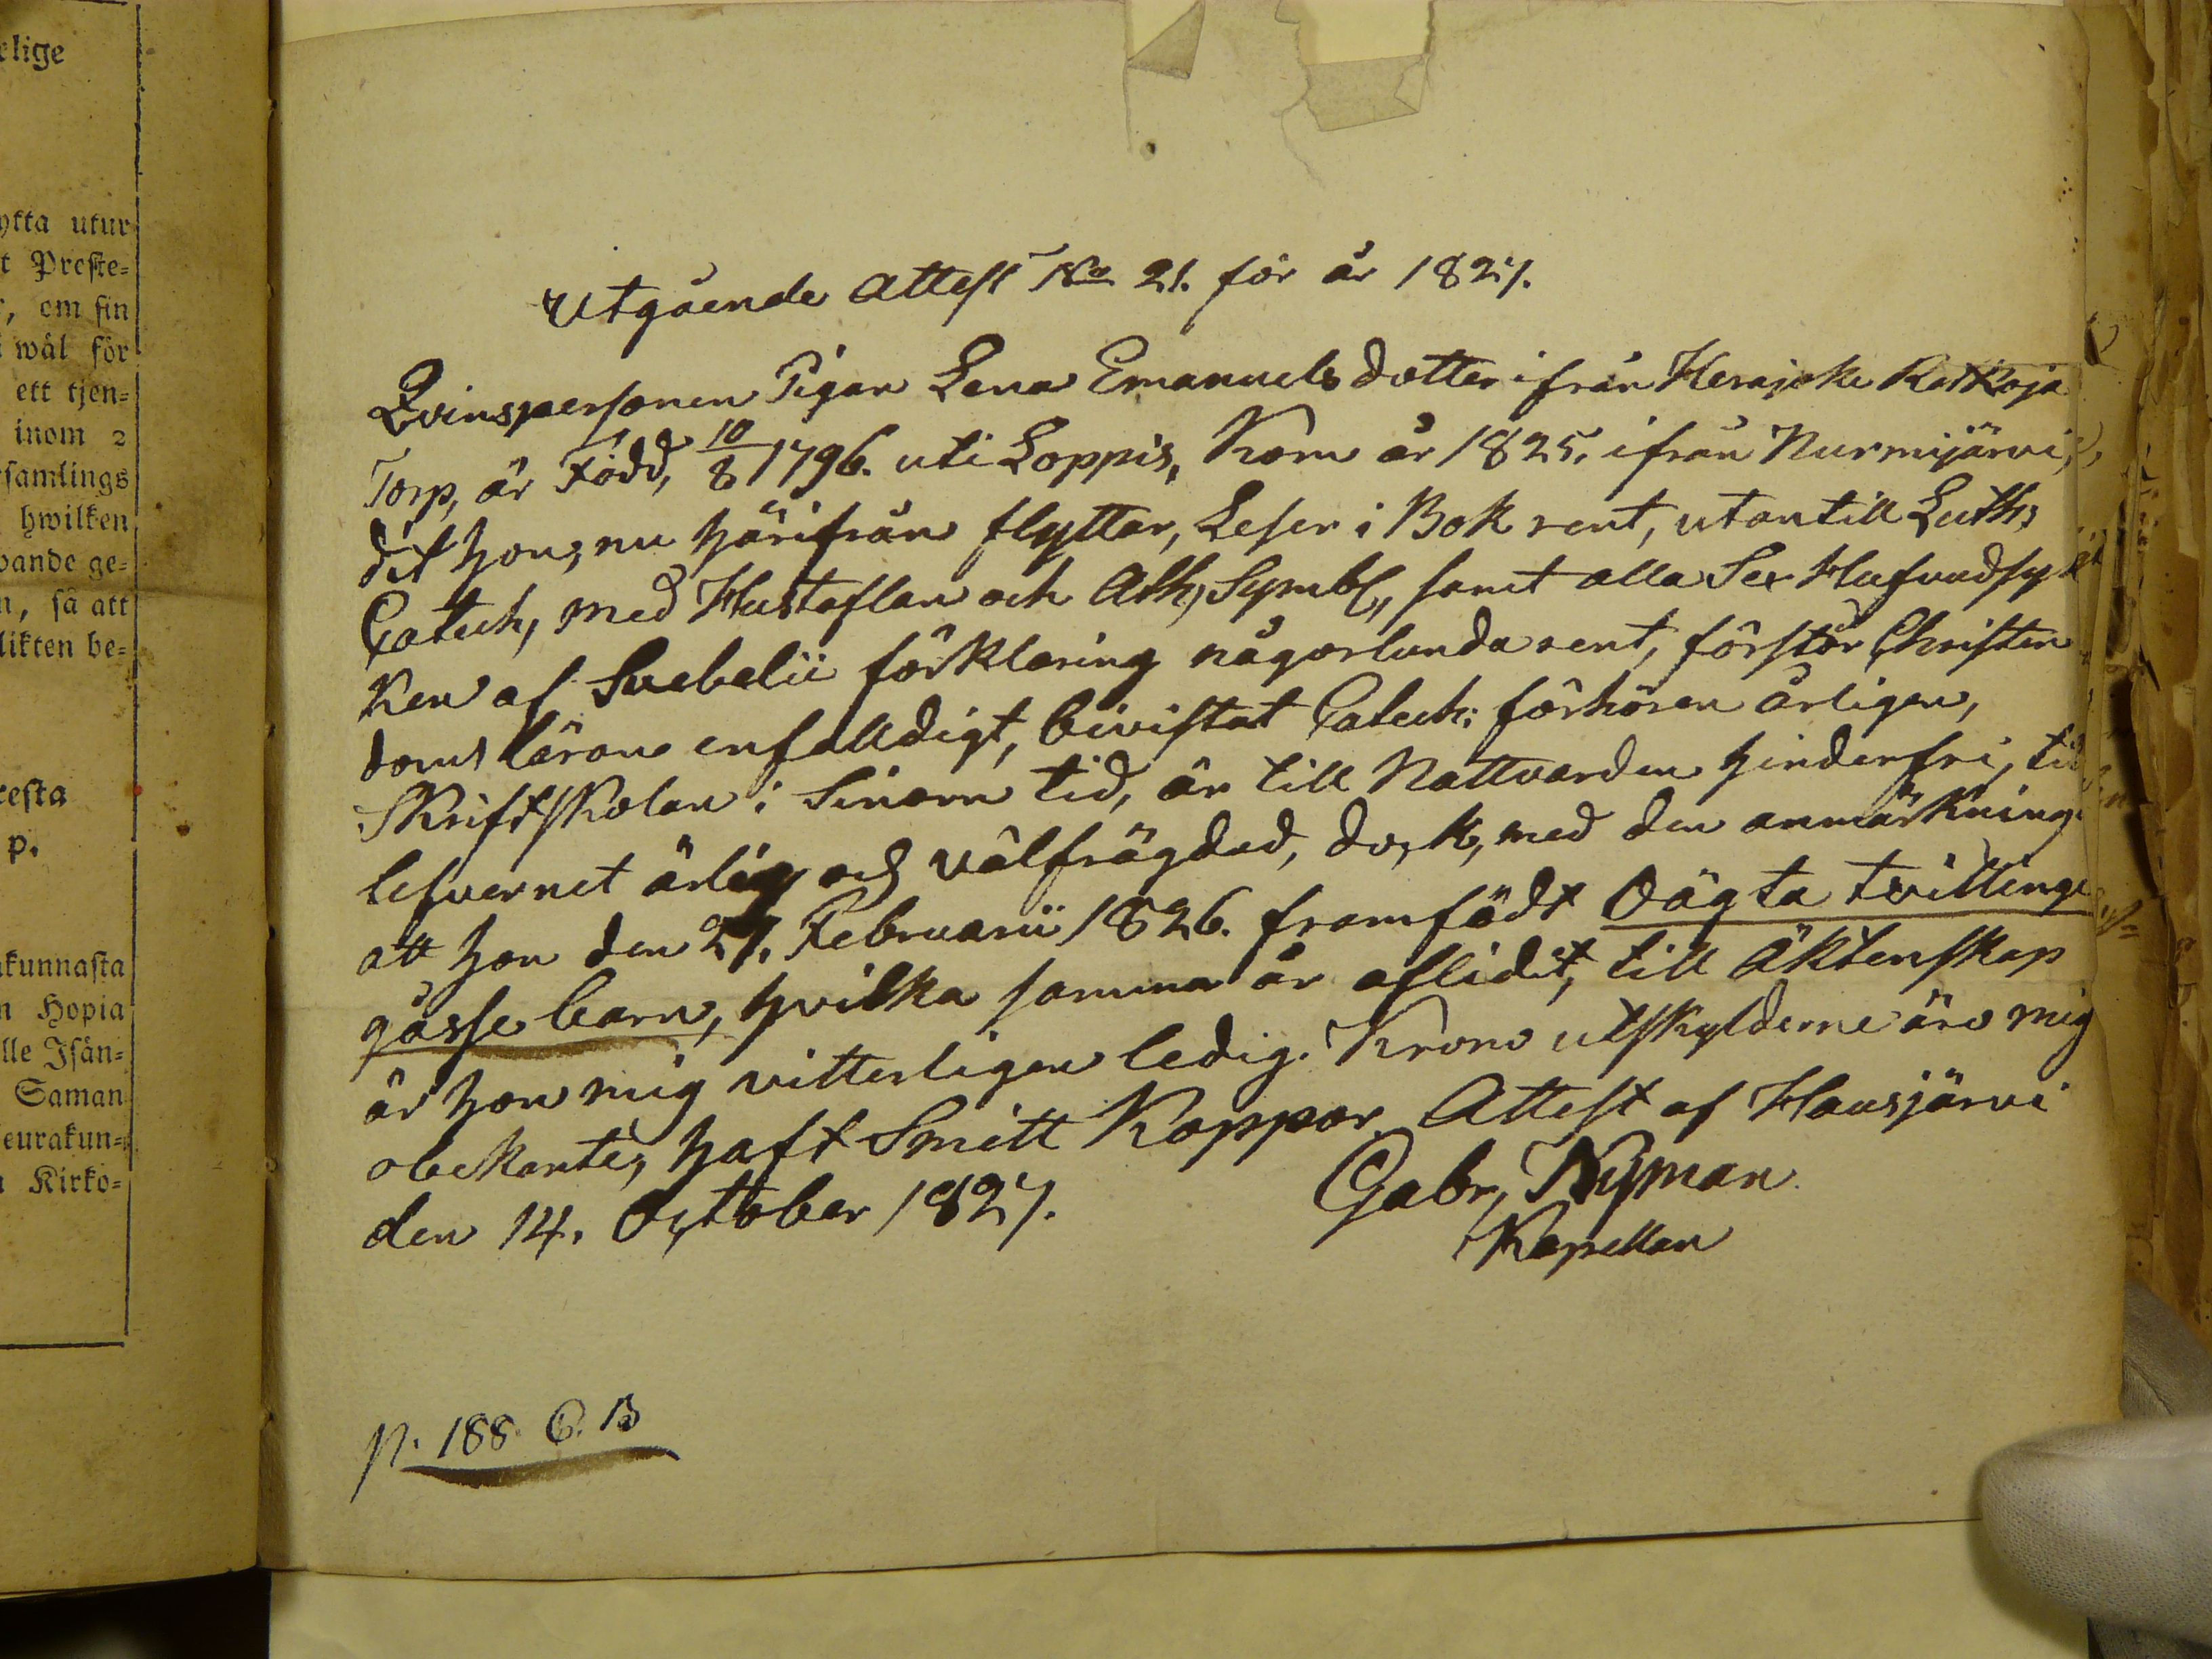 elige
ytta utur
t Preste=
, om sin
wäl för
ett tjen=
inom 2
rsamlings
hwilken
vande ge=
n, så att
likten be=
resta
p.
kunnasta
n Hopia
lle Isän=
Saman
eurakun=
Kirko=
Utgående Attest No 21. för år 1827.
Qvinspersonen Pigan Lena Emanuelsdotter ifrån Herajoki Ratkoja
Torp, är Född, 10/8 1796. uti Loppis, Kom år 1825, ifrån Nurmijärvi,
dit hon, nu härifrån flyttar, Leser i Bok rent, utantill Luth;
Catech, med Hustaflan och Ath, Symbl, samt alla Sex Hufvudsty
ken af Svebelii förklaring någorlunda rent, förstår Christen
doms läran enfalldigt, bivistat Catech: förhören årligen,
Skriftskolan i Sinom tid, är till Nattvarden hinderfri, till
lefvernet ärlig och välfrägdad, dock, med den anmärkning.
att hon den 27. Februarii 1826. framfödt Oägta tvillinge
gåsse barn, hvilka samma år aflidit, till Äktenskap
är hon mig vitterligen ledig. Krono utskylderne äro mig
obekante, haft Smitt Koppor. Attest af Hausjärvi
den 14. October 1827.
Gabr, Nyman
Kapellan
p. 188 C. B